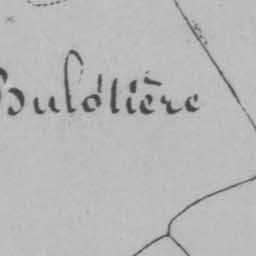 Bulotière